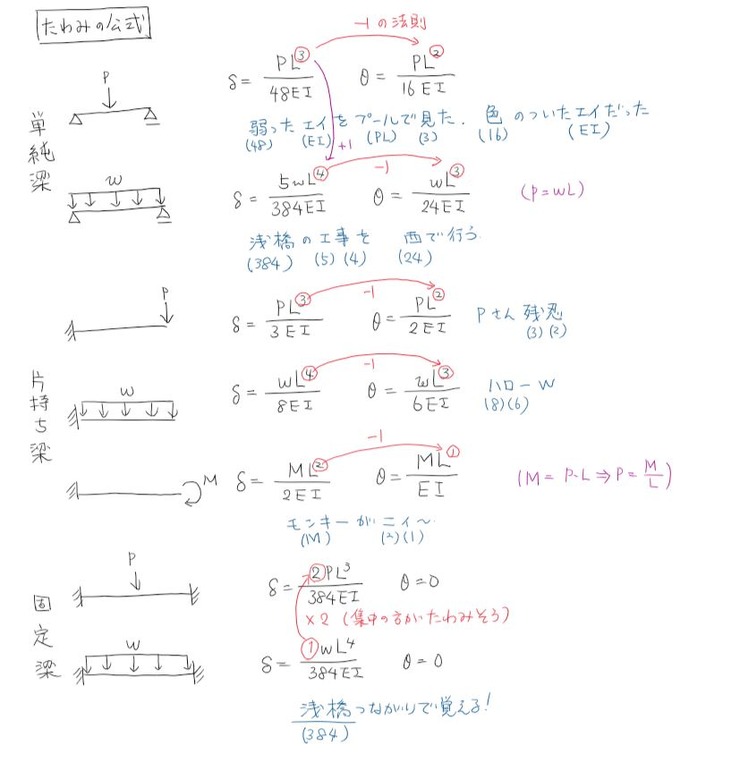 たわみの公式
-1の法則
単純梁
P
δ = PL③/48EI θ = PL②/16EI
弱った エイ を プールで見た. 色 のついたエイだった
(48) (EI) (PL) (3) (16) (EI)
+1
-1
w
δ = 5wL④/384EI θ = wL③/24EI (P=wL)
浅橋 の 工事 を 西で行う
(384) (5)(4) (24)
片持ち梁
-1
P
δ = PL③/3EI θ = PL②/2EI Pさん 残忍
(3)(2)
-1
w
δ = wL④/8EI θ = wL③/6EI ハロー W
(8)(6)
-1
M
δ = ML②/2EI θ = ML①/EI (M = P·L ⇒ P = M/L)
モンキー が ニィ〜
(M) (2)(1)
固定梁
P
δ = ②PL³/384EI θ=0
×2 (集中の方がたわみそう)
w
δ = ①wL⁴/384EI θ=0
浅橋つながりで覚える!
(384)